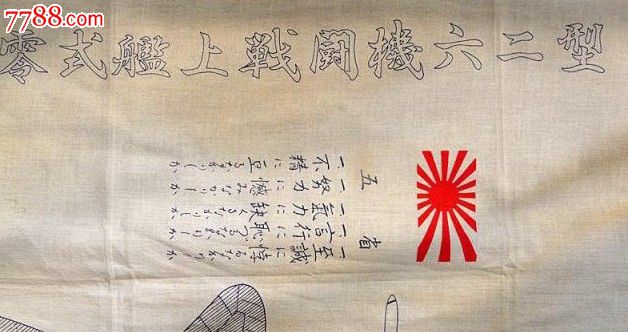 7788.com
零式艦上戦闘機六二型
五省
一、至誠に悖るなかりしか
一、言行に恥づるなかりしか
一、氣力に缺くるなかりしか
一、努力に憾みなかりしか
一、不精に亘るなかりしか